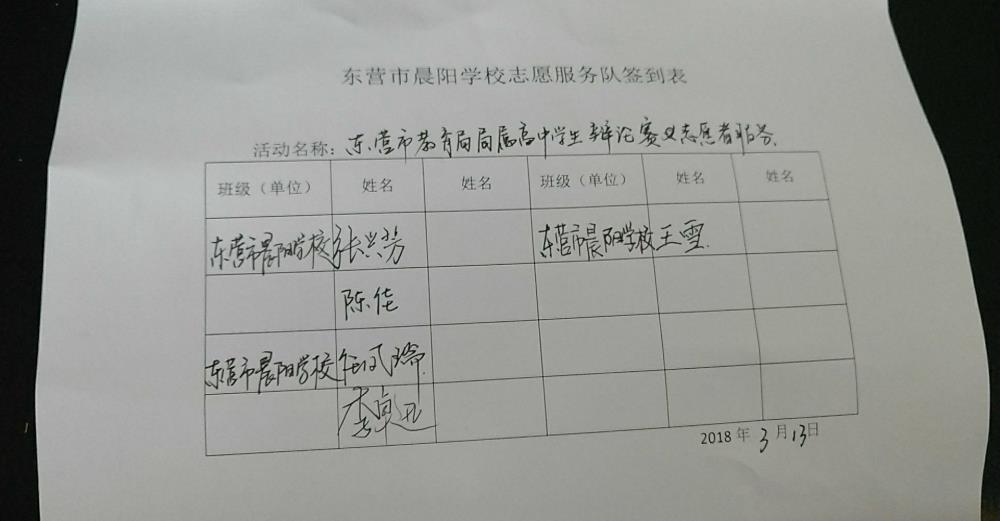 东营市晨阳学校志愿服务队签到表
活动名称：东营市教育局局属高中学生辩论赛义志愿者服务
班级（单位） 姓名 姓名 班级（单位） 姓名 姓名
东营市晨阳学校 张兴芳 东营市晨阳学校 王雪
陈佳
东营市晨阳学校 任凤瑞
李卓
2018年3月13日